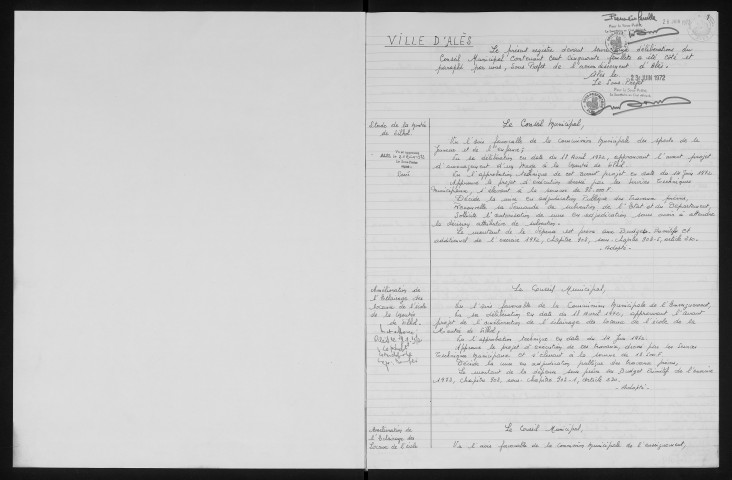 VILLE D'ALÈS
Le présent registre devant servir aux délibérations du
Conseil Municipal contenant cent cinquante feuillets a été coté et
paraphé par nous, Sous Préfet de l'arrondissement d'Alès.
Alès le 29 JUIN 1972
Le Sous Préfet
Stade de la
de
Le Conseil Municipal,
Vu l'avis favorable de la commission Municipale des sports de la
Jeunesse et de l'Enfance,
Vu sa délibération en date du Avril 1972, approuvant l'avant projet
d'aménagement d'un stade à la
Vu l'approbation technique de cet avant projet en date du Juin 1972
Approuve le projet d'exécution dressé par les Services Techniques
Municipaux, s'élevant à la somme de
Décide la mise en adjudication Publique des travaux prévus,
Renouvelle sa demande de subvention de l'Etat et du Département,
Sollicite l'autorisation de mise en adjudication sans avoir à attendre
la décision attributive de subvention.
Le montant de la dépense est prévu aux Budgets Primitif et
additionnel de l'exercice 1972, chapitre 903, sous chapitre 903-5, article
- Adopté -
Amélioration de
l'Eclairage des
locaux de l'école
de la
de
Le Conseil Municipal,
Vu l'avis favorable de la Commission Municipale de l'Enseignement,
Vu sa délibération en date du Avril 1972, approuvant l'avant
projet de l'amélioration de l'éclairage des locaux de l'école de la
de
Vu l'approbation technique en date du Juin 1972
Approuve le projet d'exécution de ces travaux, dressé par les Services
Techniques Municipaux et s'élevant à la somme de
Décide la mise en adjudication publique des travaux prévus,
Le montant de la dépense sera prévu au Budget Primitif de l'exercice
1973, chapitre 903, sous chapitre 903-1, article
- Adopté -
Amélioration de
l'Eclairage des
locaux de l'école
Le Conseil Municipal,
Vu l'avis favorable de la commission Municipale de l'enseignement,